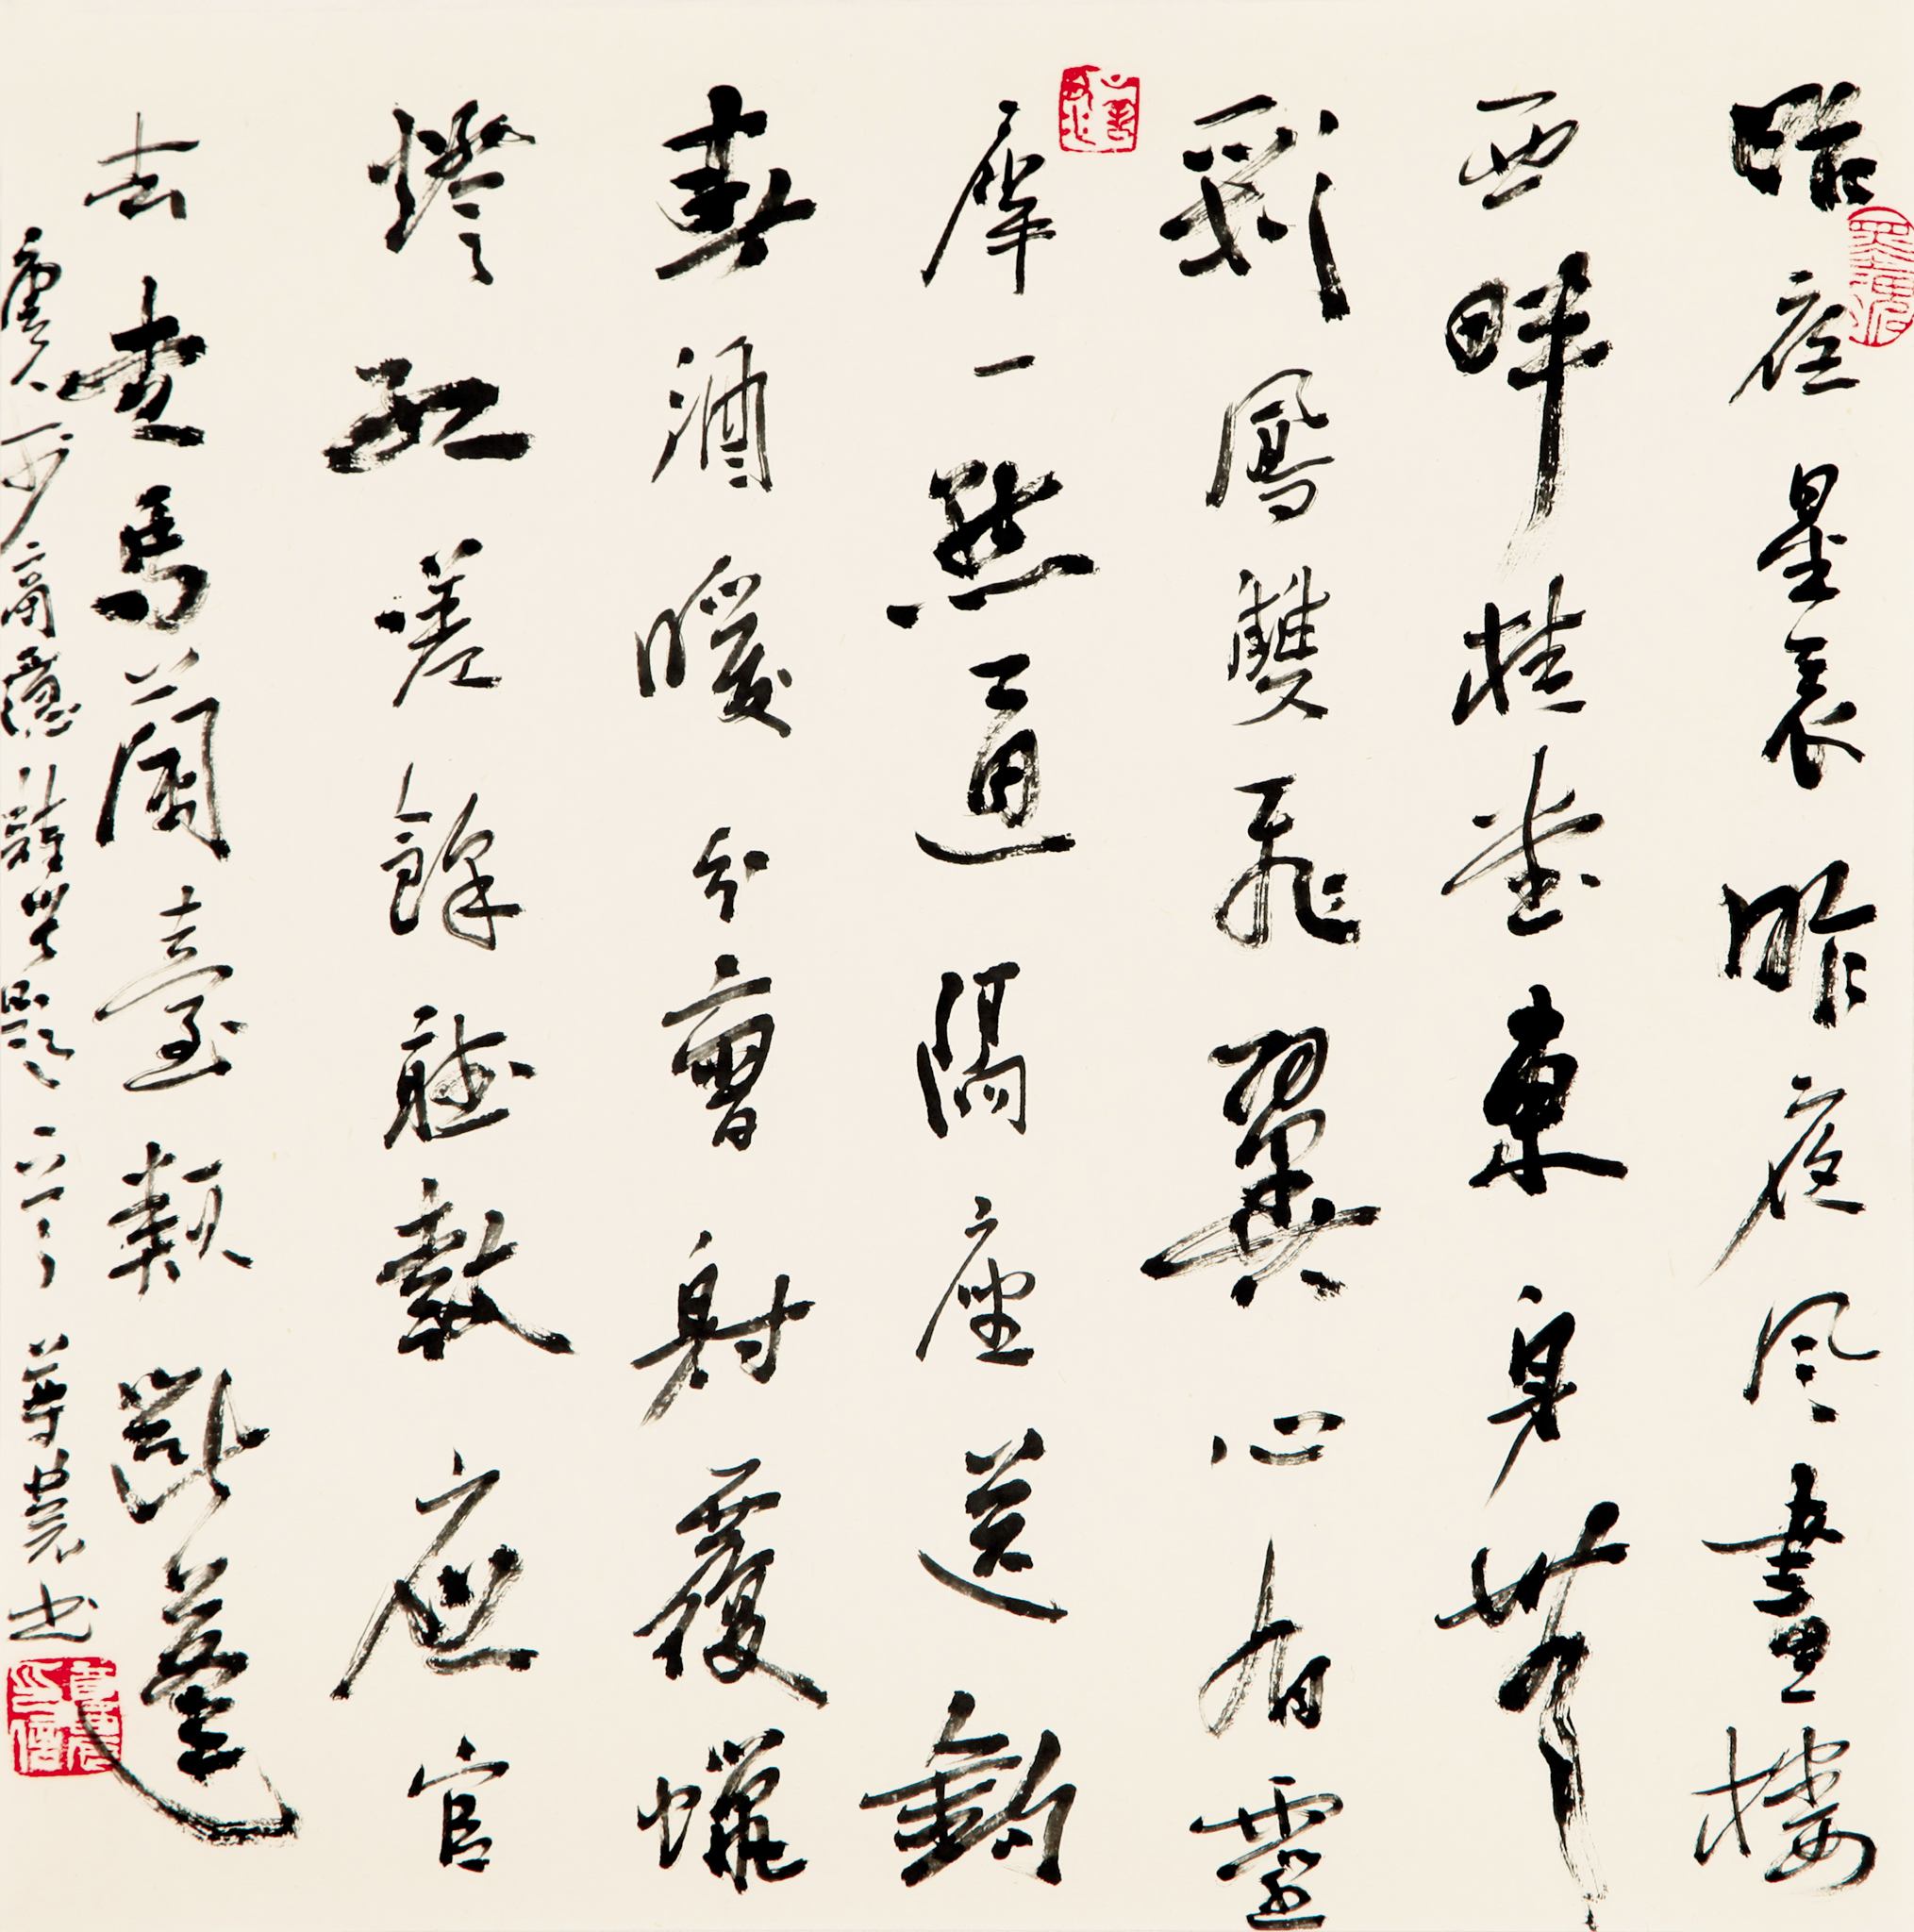 昨夜星辰昨夜風畫樓
西畔桂堂東身無
彩鳳雙飛翼心有靈
犀一點通隔座送鉤
春酒暖分曹射覆蠟
燈紅嗟餘聽鼓應官
去走馬蘭臺類斷蓬
唐人李商隱詩無題 書